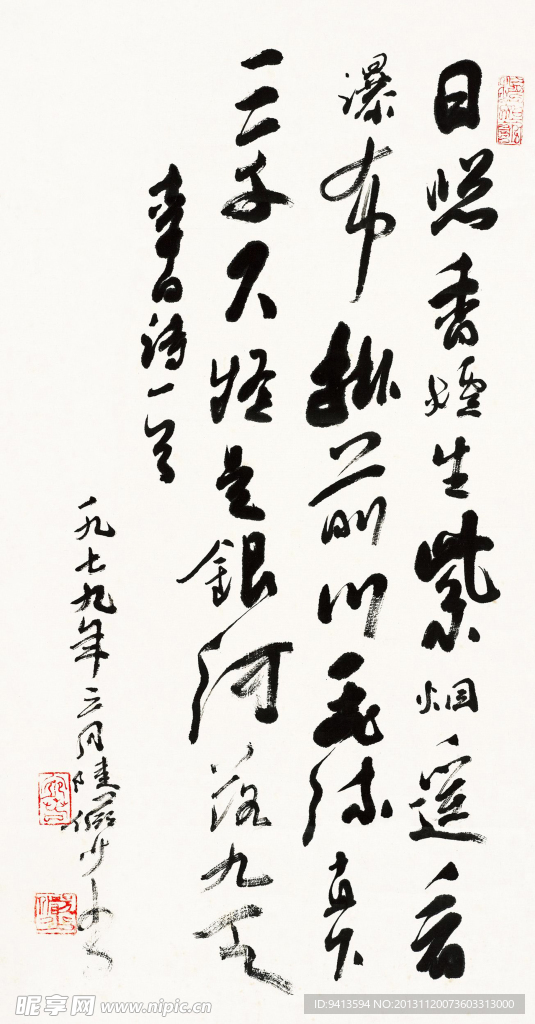 日照香爐生紫烟遥看
瀑布掛前川飛流直下
三千尺疑是銀河落九天
李白詩一首
一九七九年三月陸儼少书
昵享网 www.nipic.cn
ID:9413594 NO:20131120073603313000